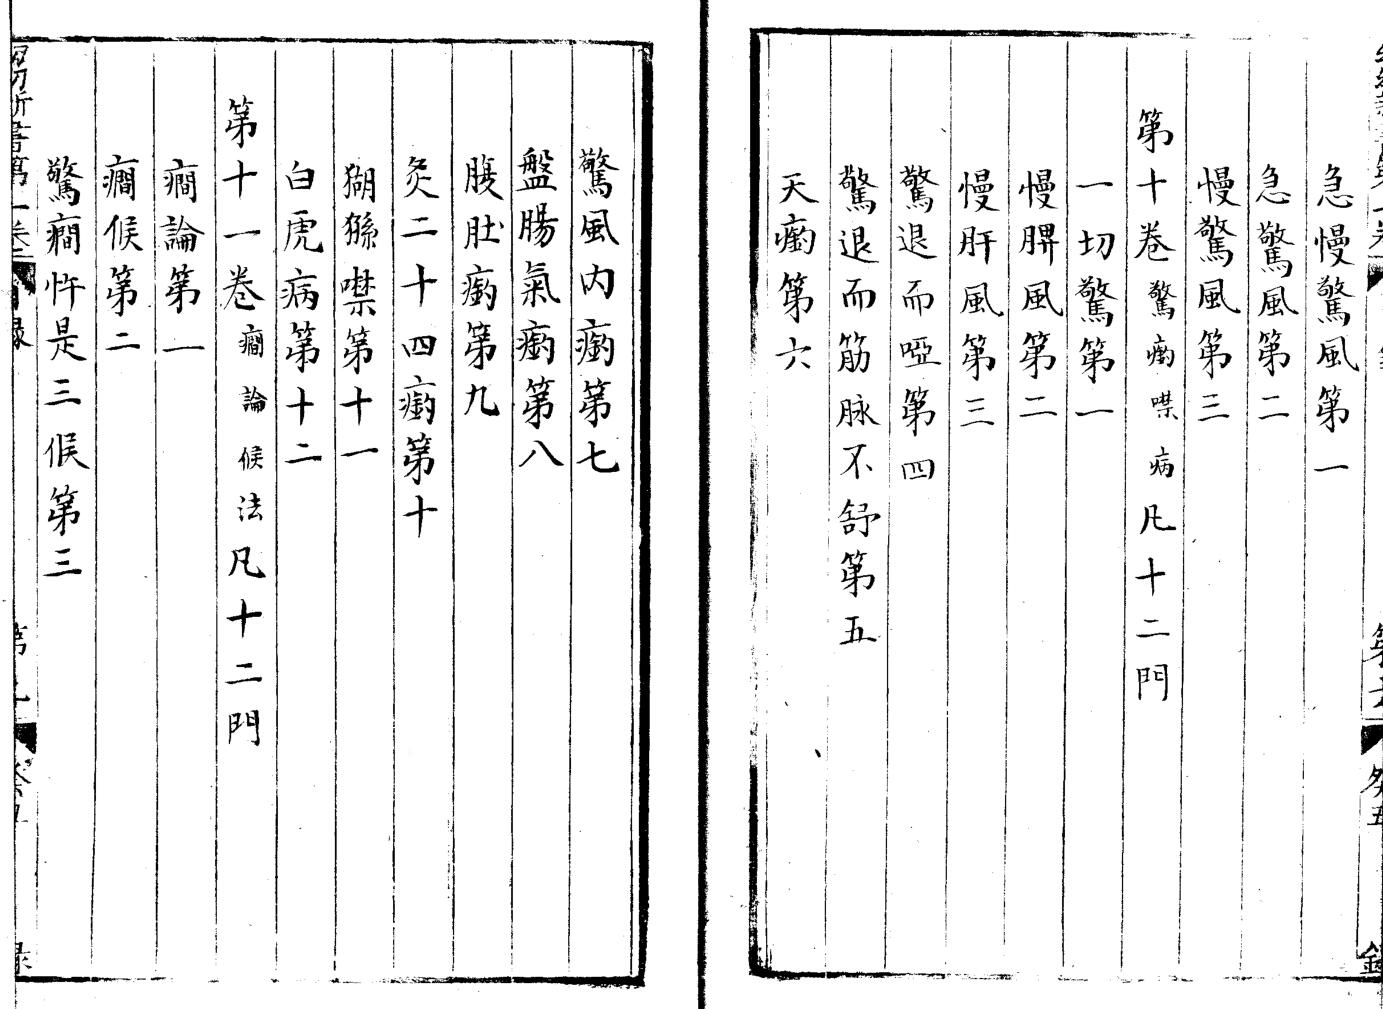 急慢驚風第一
急驚風第二
慢驚風第三
第十卷驚瘹噤病凡十二門
一切驚第一
慢脾風第二
慢肝風第三
驚退而啞第四
驚退而筋脉不舒第五
天瘹第六
驚風內瘹第七
盤腸氣瘹第八
腹肚瘹第九
灸二十四瘹第十
猢猻噤第十一
白虎病第十二
第十一卷癇論候法凡十二門
癇論第一
癇候第二
驚癇忤是三候第三